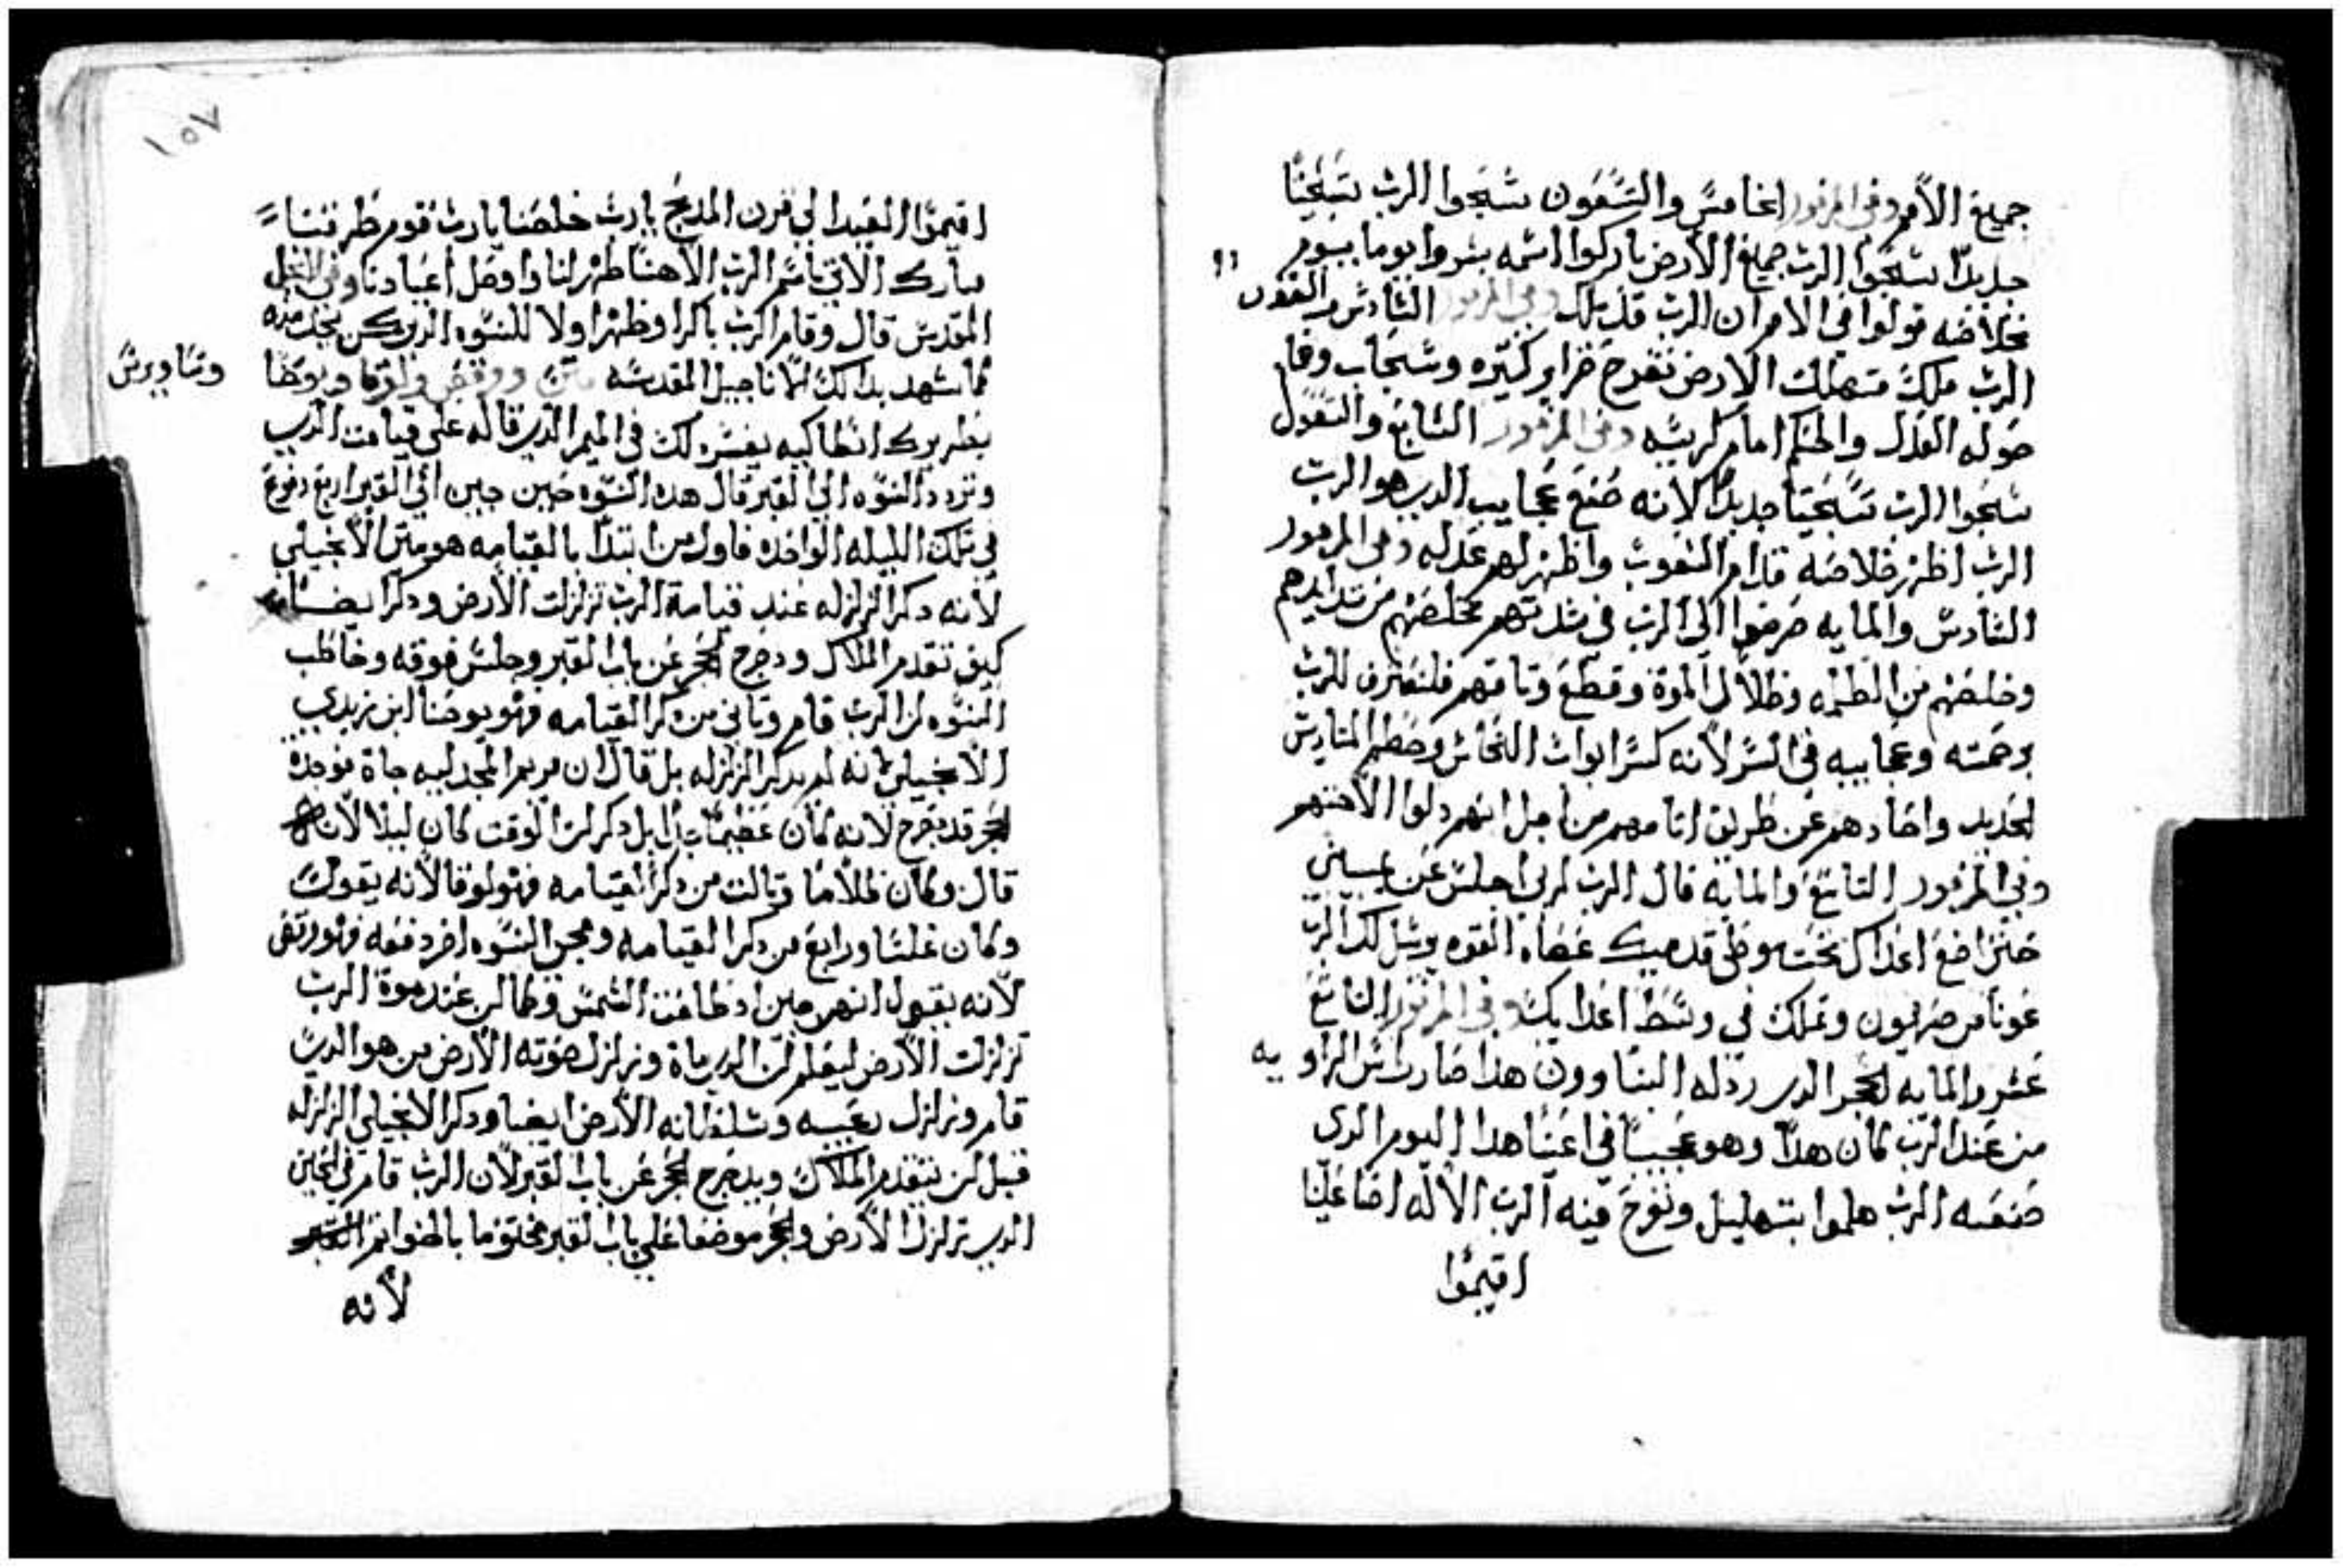 جميع الأمم وفي المزمور الخامس والتسعون سبحوا الرب تسبيحًا
جديدًا سبحوا الرب جميع الأرض باركوا اسمه بشروا يومًا بيوم
بخلاصه قولوا في الامم ان الرب قد ملك وفي المزمور السادس والتسعون
الرب ملك تتهلل الارض تفرح جزاير كثيره وسحاب
حوله العدل والحكم امام كرسيه وفي المزمور السابع والتسعون
سبحوا الرب تسبيحًا جديدًا لانه صنع عجايب الرب هو الرب
الرب اظهر خلاصه قدام الشعوب واظهر لهم عدله وفي المزمور
السادس والمايه صرخوا الى الرب في شدتهم فخلصهم من شدايدهم
وخلصهم من الظلمه وظلال الموة وقطع وتاقهم فلتعترف للرب
برحمته وعجايبه في البشر لأنه كسر ابواب النحاس وحطم المتاريس
الحديد واضادهم عن طريق اتامهم من اجل انهم دلوا لآهتهم
وفي المزمور التاسع والمايه قال الرب لربي اجلس عن يميني
حتى اضع اعداك تحت موطى قدميك عصاة القوه يرسل لك الرب
عونا من صهيون وتملك في وسط اعدايك وفي المزمور السابع
عشر والمايه الحجر الدي ردله البناوون هدا صار راس الزاويه
من عند الرب كان هدا وهو عجيبًا في اعيننا هدا اليوم الدي
صنعه الرب هلموا بتهليل ونفرح فيه الرب الأله اضا علينا
اقيموا
١٥٧
اقيموا العيد الى قرن المدبح يارب خلصنا يارب قوم طرقنا
مبارك الاتي باسم الرب الاهنا ظهر لنا واوصل اعيادنا وفي انجيل
المقدس قال وقام الرب باكرا وظهر اولا للنسوه الدي كن
كما شهد بدالك الأناجيل المقدسه متى ومرقس ولوقا ويوحنا
وساويرس
بطريرك انطاكيه يفسر لك في الميمر الدي قاله على قيامت الرب
وتردد النسوه الى القبر قال هده النسوه حين جين الى القبر اربع دفوع
في تلك الليله الواحده فاول من ابتدا بالقيامه هو متى الأنجيلي
لأنه دكر الزلزله عند قيامة الرب تزلزلت الأرض ودكر ايضا
كيف تقدم الملاك ودحرج الحجر عن باب القبر وجلس فوقه وخاطب
النسوه ان الرب قام وتاني من دكر القيامه فهو يوحنا ابن زبدي
الأنجيلي لانه لم يدكر الزلزله بل قال ان مريم المجدليه جاة فوجدة
الحجر قد دحرج لانه كان عظيمًا جدًا بل دكر ان الوقت كان ليلا لأنه
قال وكان ظلاما وتالت من دكر القيامه فهو لوقا لأنه يقول
وكان غلسًا ورابع من دكر القيامه ومجي النسوه اخر دفعه فهو مرقس
لأنه يقول انهن جين اد طلعت الشمس وكما ان عند موة الرب
تزلزلت الأرض ليعلم ان الدي ماة وتزلزل موته الأرض من هو الدي
قام وتزلزل بمجيه وسلطانه الأرض ايضا ودكر الانجيلي الزلزله
قبل ان يتقدم الملاك ويدحرج الحجر عن باب القبر لأن الرب قام في الحين
الدي تزلزل الأرض والحجر موضعا على باب القبر مختوما بالخواتم
لأنه